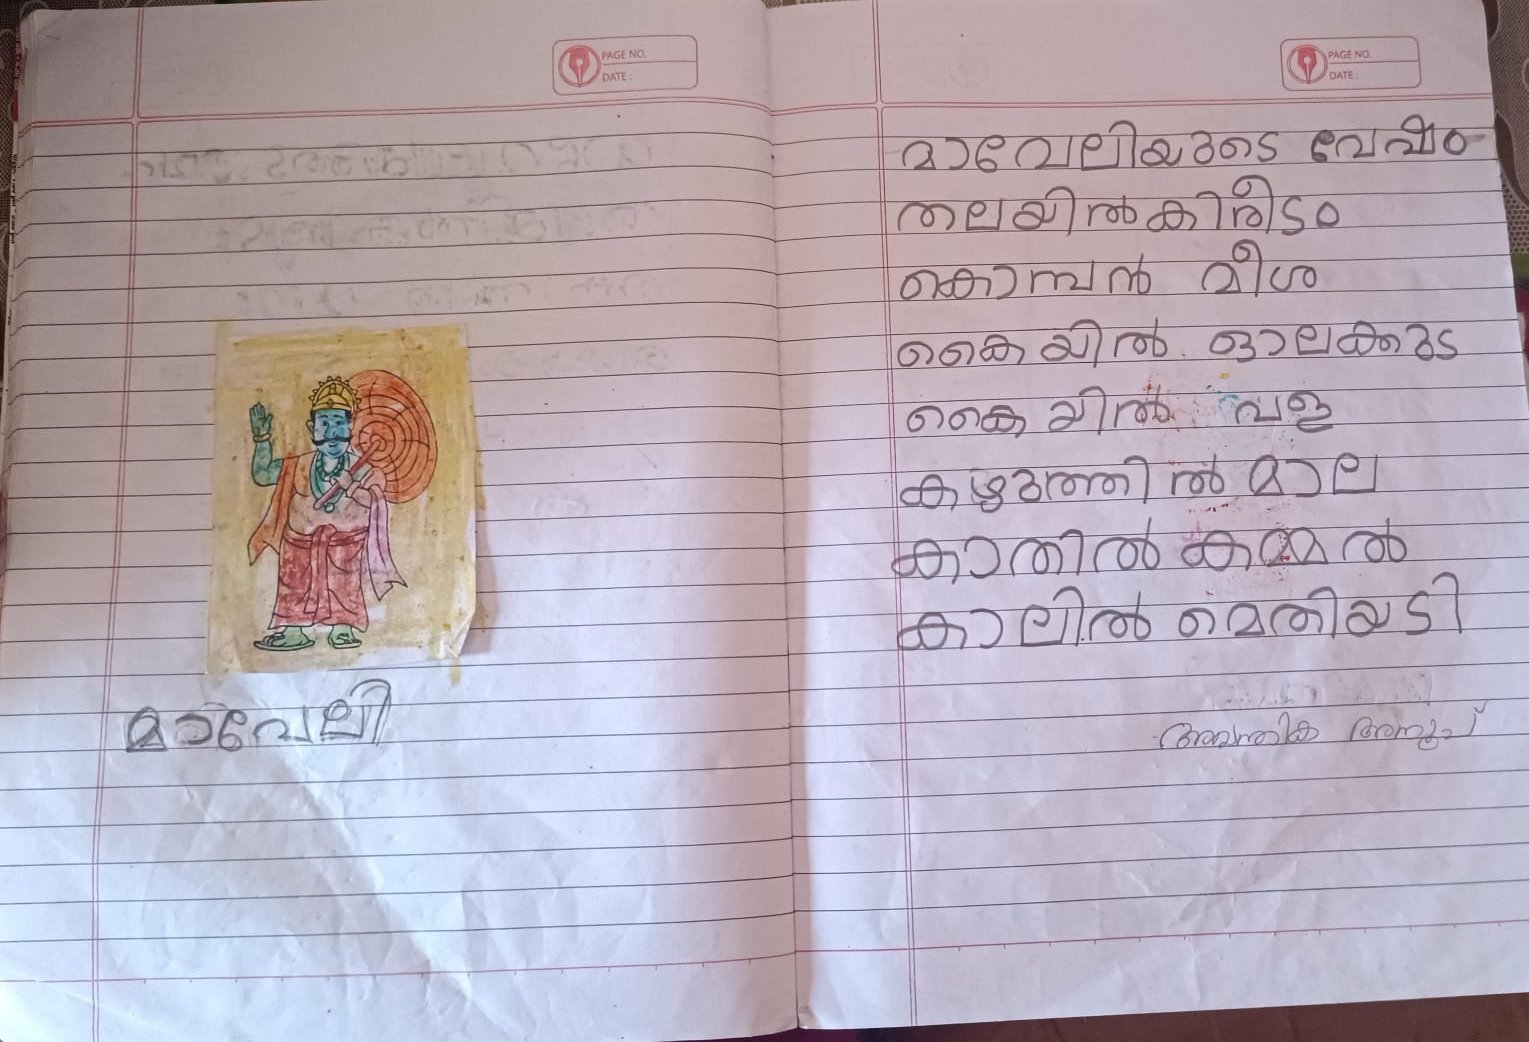 PAGE NO.
DATE :
മാവേലി
PAGE NO.
DATE :
മാവേലിയുടെ വേഷം
തലയിൽ കിരീടം
കൊമ്പൻ മീശ
കൈയിൽ ഓലക്കുട
കൈയിൽ വള
കഴുത്തിൽ മാല
കാതിൽ കമ്മൽ
കാലിൽ മെതിയടി
അവന്തിക അനൂപ്